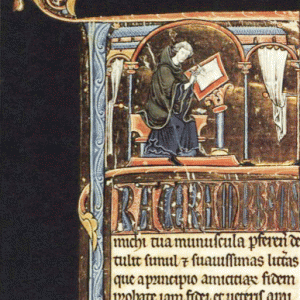 michi tua munuscula pferen de
tulit simul ⁊ suauissimas litt̃as
que a principio amicitiae fidem
probate iam fidei et ueteris ami